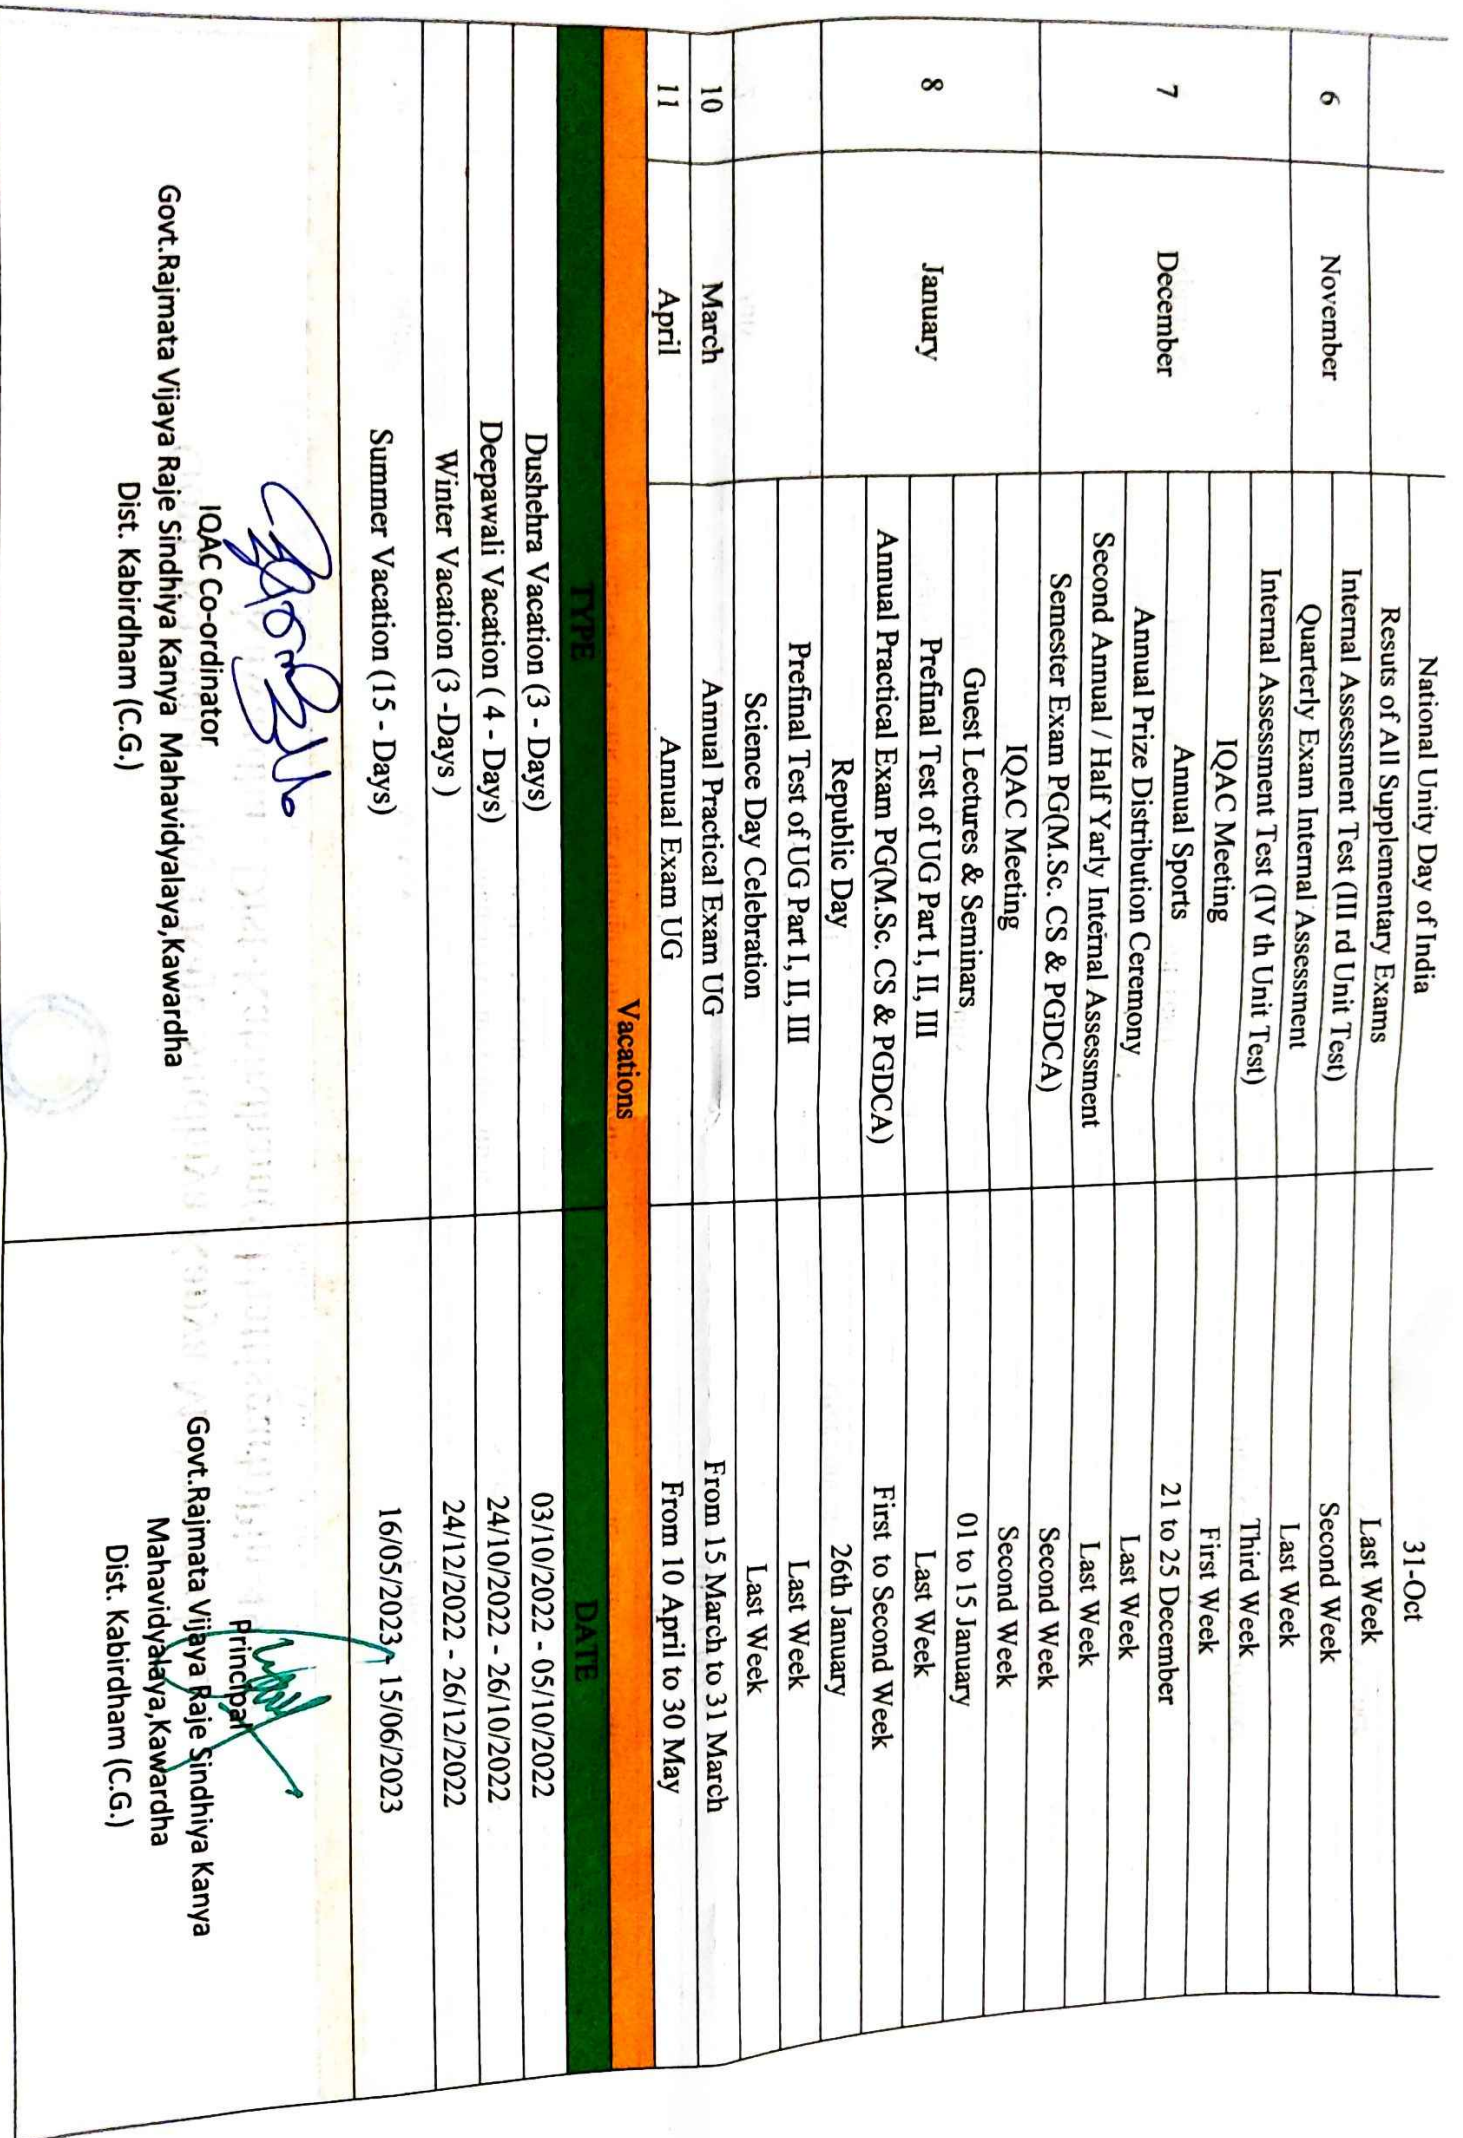 National Unity Day of India 31-Oct
Resuts of All Supplementary Exams Last Week
6 November Internal Assessment Test (III rd Unit Test) Second Week
Quarterly Exam Internal Assessment Last Week
Internal Assessment Test (IV th Unit Test) Third Week
IQAC Meeting First Week
7 December Annual Sports 21 to 25 December
Annual Prize Distribution Ceremony Last Week
Second Annual / Half Yarly Internal Assessment Last Week
Semester Exam PG(M.Sc. CS & PGDCA) Second Week
IQAC Meeting Second Week
Guest Lectures & Seminars 01 to 15 January
8 January Prefinal Test of UG Part I, II, III Last Week
Annual Practical Exam PG(M.Sc. CS & PGDCA) First to Second Week
Republic Day 26th January
Prefinal Test of UG Part I, II, III Last Week
Science Day Celebration Last Week
10 March Annual Practical Exam UG From 15 March to 31 March
11 April Annual Exam UG From 10 April to 30 May
Vacations
TYPE DATE
Dushehra Vacation (3 - Days) 03/10/2022 - 05/10/2022
Deepawali Vacation ( 4 - Days) 24/10/2022 - 26/10/2022
Winter Vacation (3 -Days ) 24/12/2022 - 26/12/2022
Summer Vacation (15 - Days) 16/05/2023 - 15/06/2023
IQAC Co-ordinator
Govt.Rajmata Vijaya Raje Sindhiya Kanya Mahavidyalaya,Kawardha
Dist. Kabirdham (C.G.)
Principal
Govt.Rajmata Vijaya Raje Sindhiya Kanya
Mahavidyalaya,Kawardha
Dist. Kabirdham (C.G.)